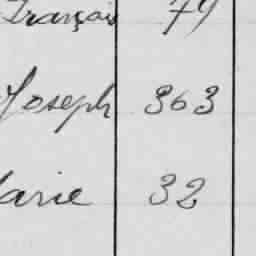 François 79
Joseph 363
Marie 32